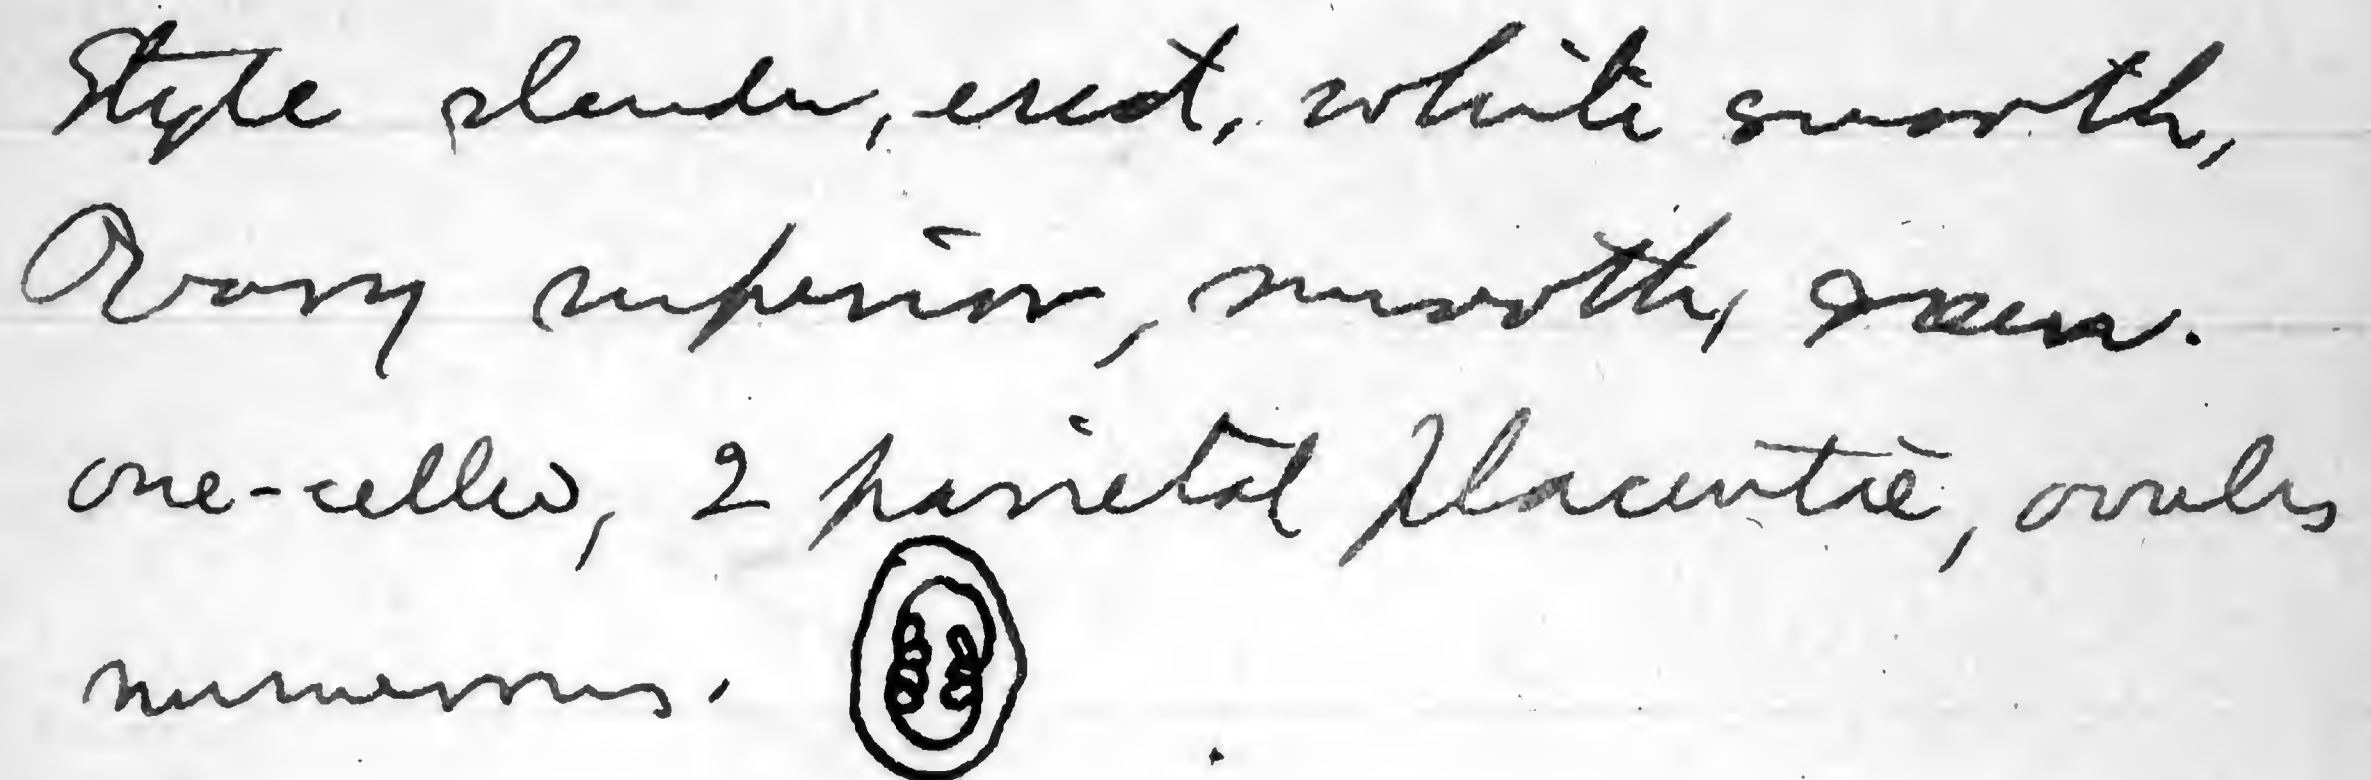 Style slender, erect, white smooth,
Ovary superior, smooth, green.
one-celled, 2 parietal placentae, ovules
numerous.